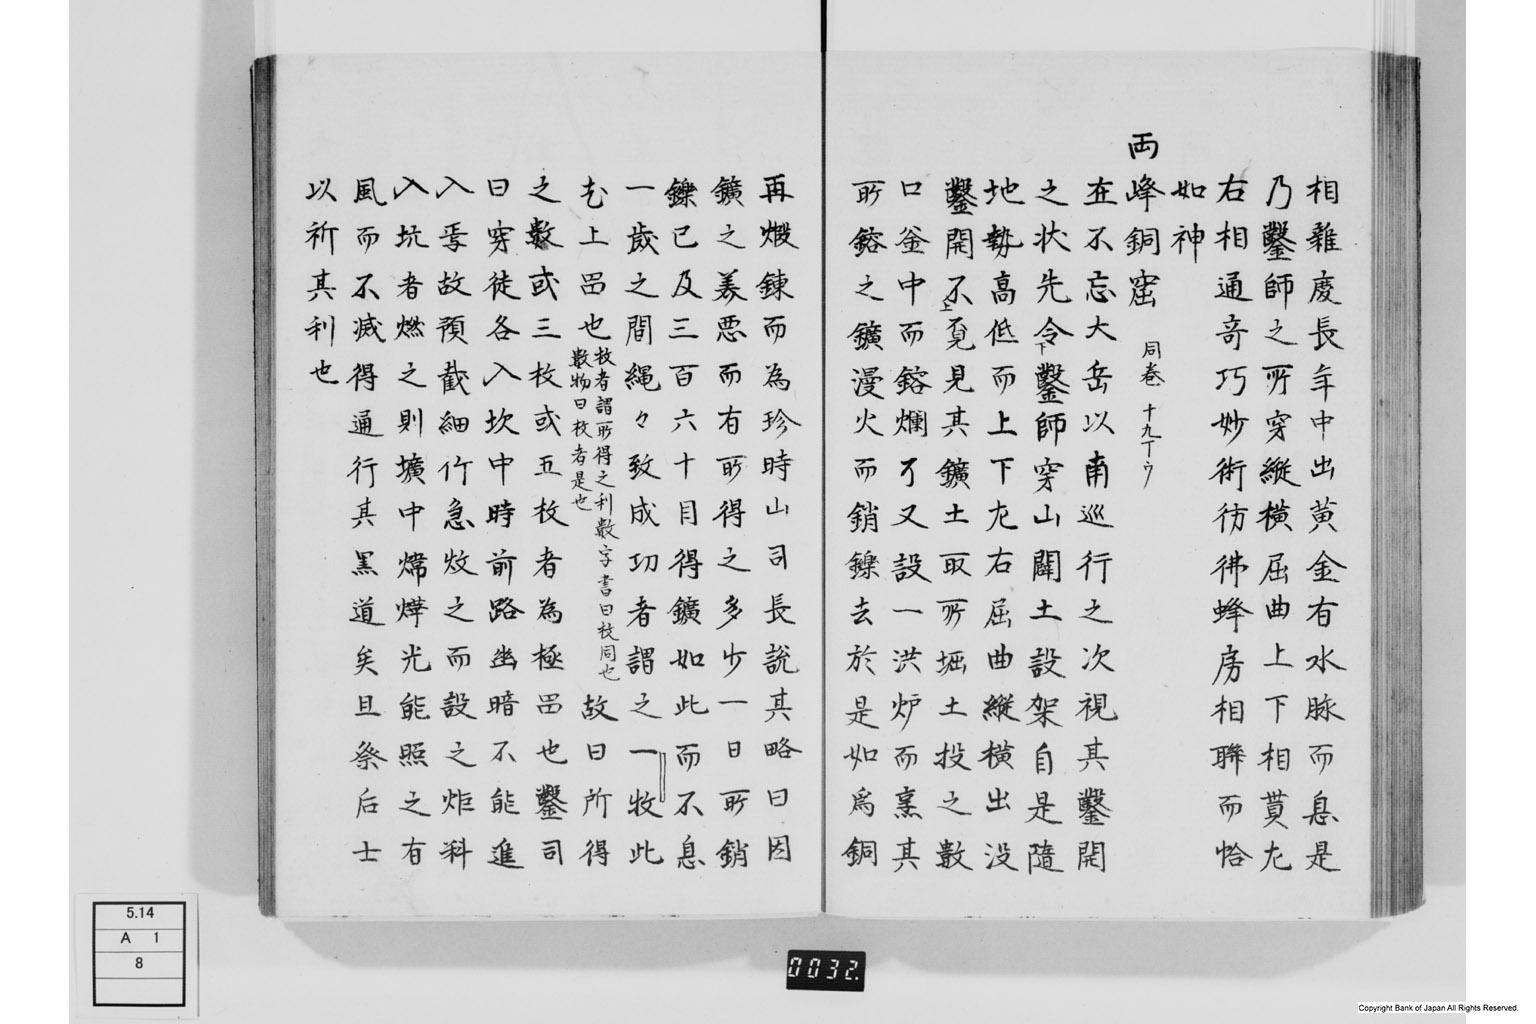 相雜慶長年中出黄金有水脉而息是
乃鑿師之所穿縱横屈曲上下相貫尢
右相通奇巧妙術彷彿蜂房相聯而恰
如神
両峰銅窟 同巻 十九丁ウ
在不忘大岳以南巡行之次視其鑿開
之状先令下鑿師穿山闢土設架自是隨
地勢高低而上下尢右屈曲縱横出没
鑿開不上覔見其鑛土取所堀土投之數
口釡中而鎔爛了又設一洪炉而烹其
所鎔之鑛漫火而銷鑠去於是如爲銅
再煅錬而為珍時山司長說其略曰因
鑛之美悪而有所得之多少一日所銷
鑠已及三百六十目得鑛如此而不息
一歳之間縄々致成功者謂之一牧此
尢上品也 枚者謂所得之利數字書曰枚同也
數物曰枚者是也 故曰所得
之數或三枚或五枚者為極品也鑿司
曰穿徒各入坎中時前路幽暗不能進
入焉故預截細竹急炇之而設之炬料
入坑者燃之則壙中煒燁光能照之有
風而不滅得通行其黒道矣且祭后士
以祈其利也
5.14
A 1
8
0032.
Copyright Bank of Japan All Rights Reserved.